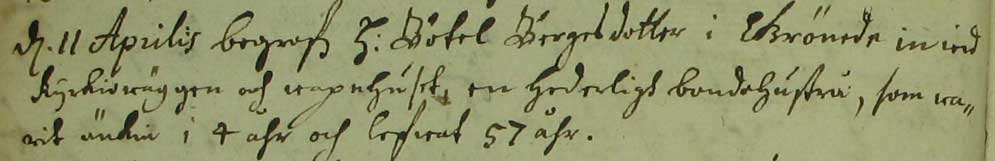 d. 11 Aprilis begrofs H: Botel Bergesdotter i Ekrönede in wid
Kyrkiowäggen och wapnhuset, en hederligh bondehustru, som wa-
rit änkia i 4 åhr och lefwat 57 åhr.